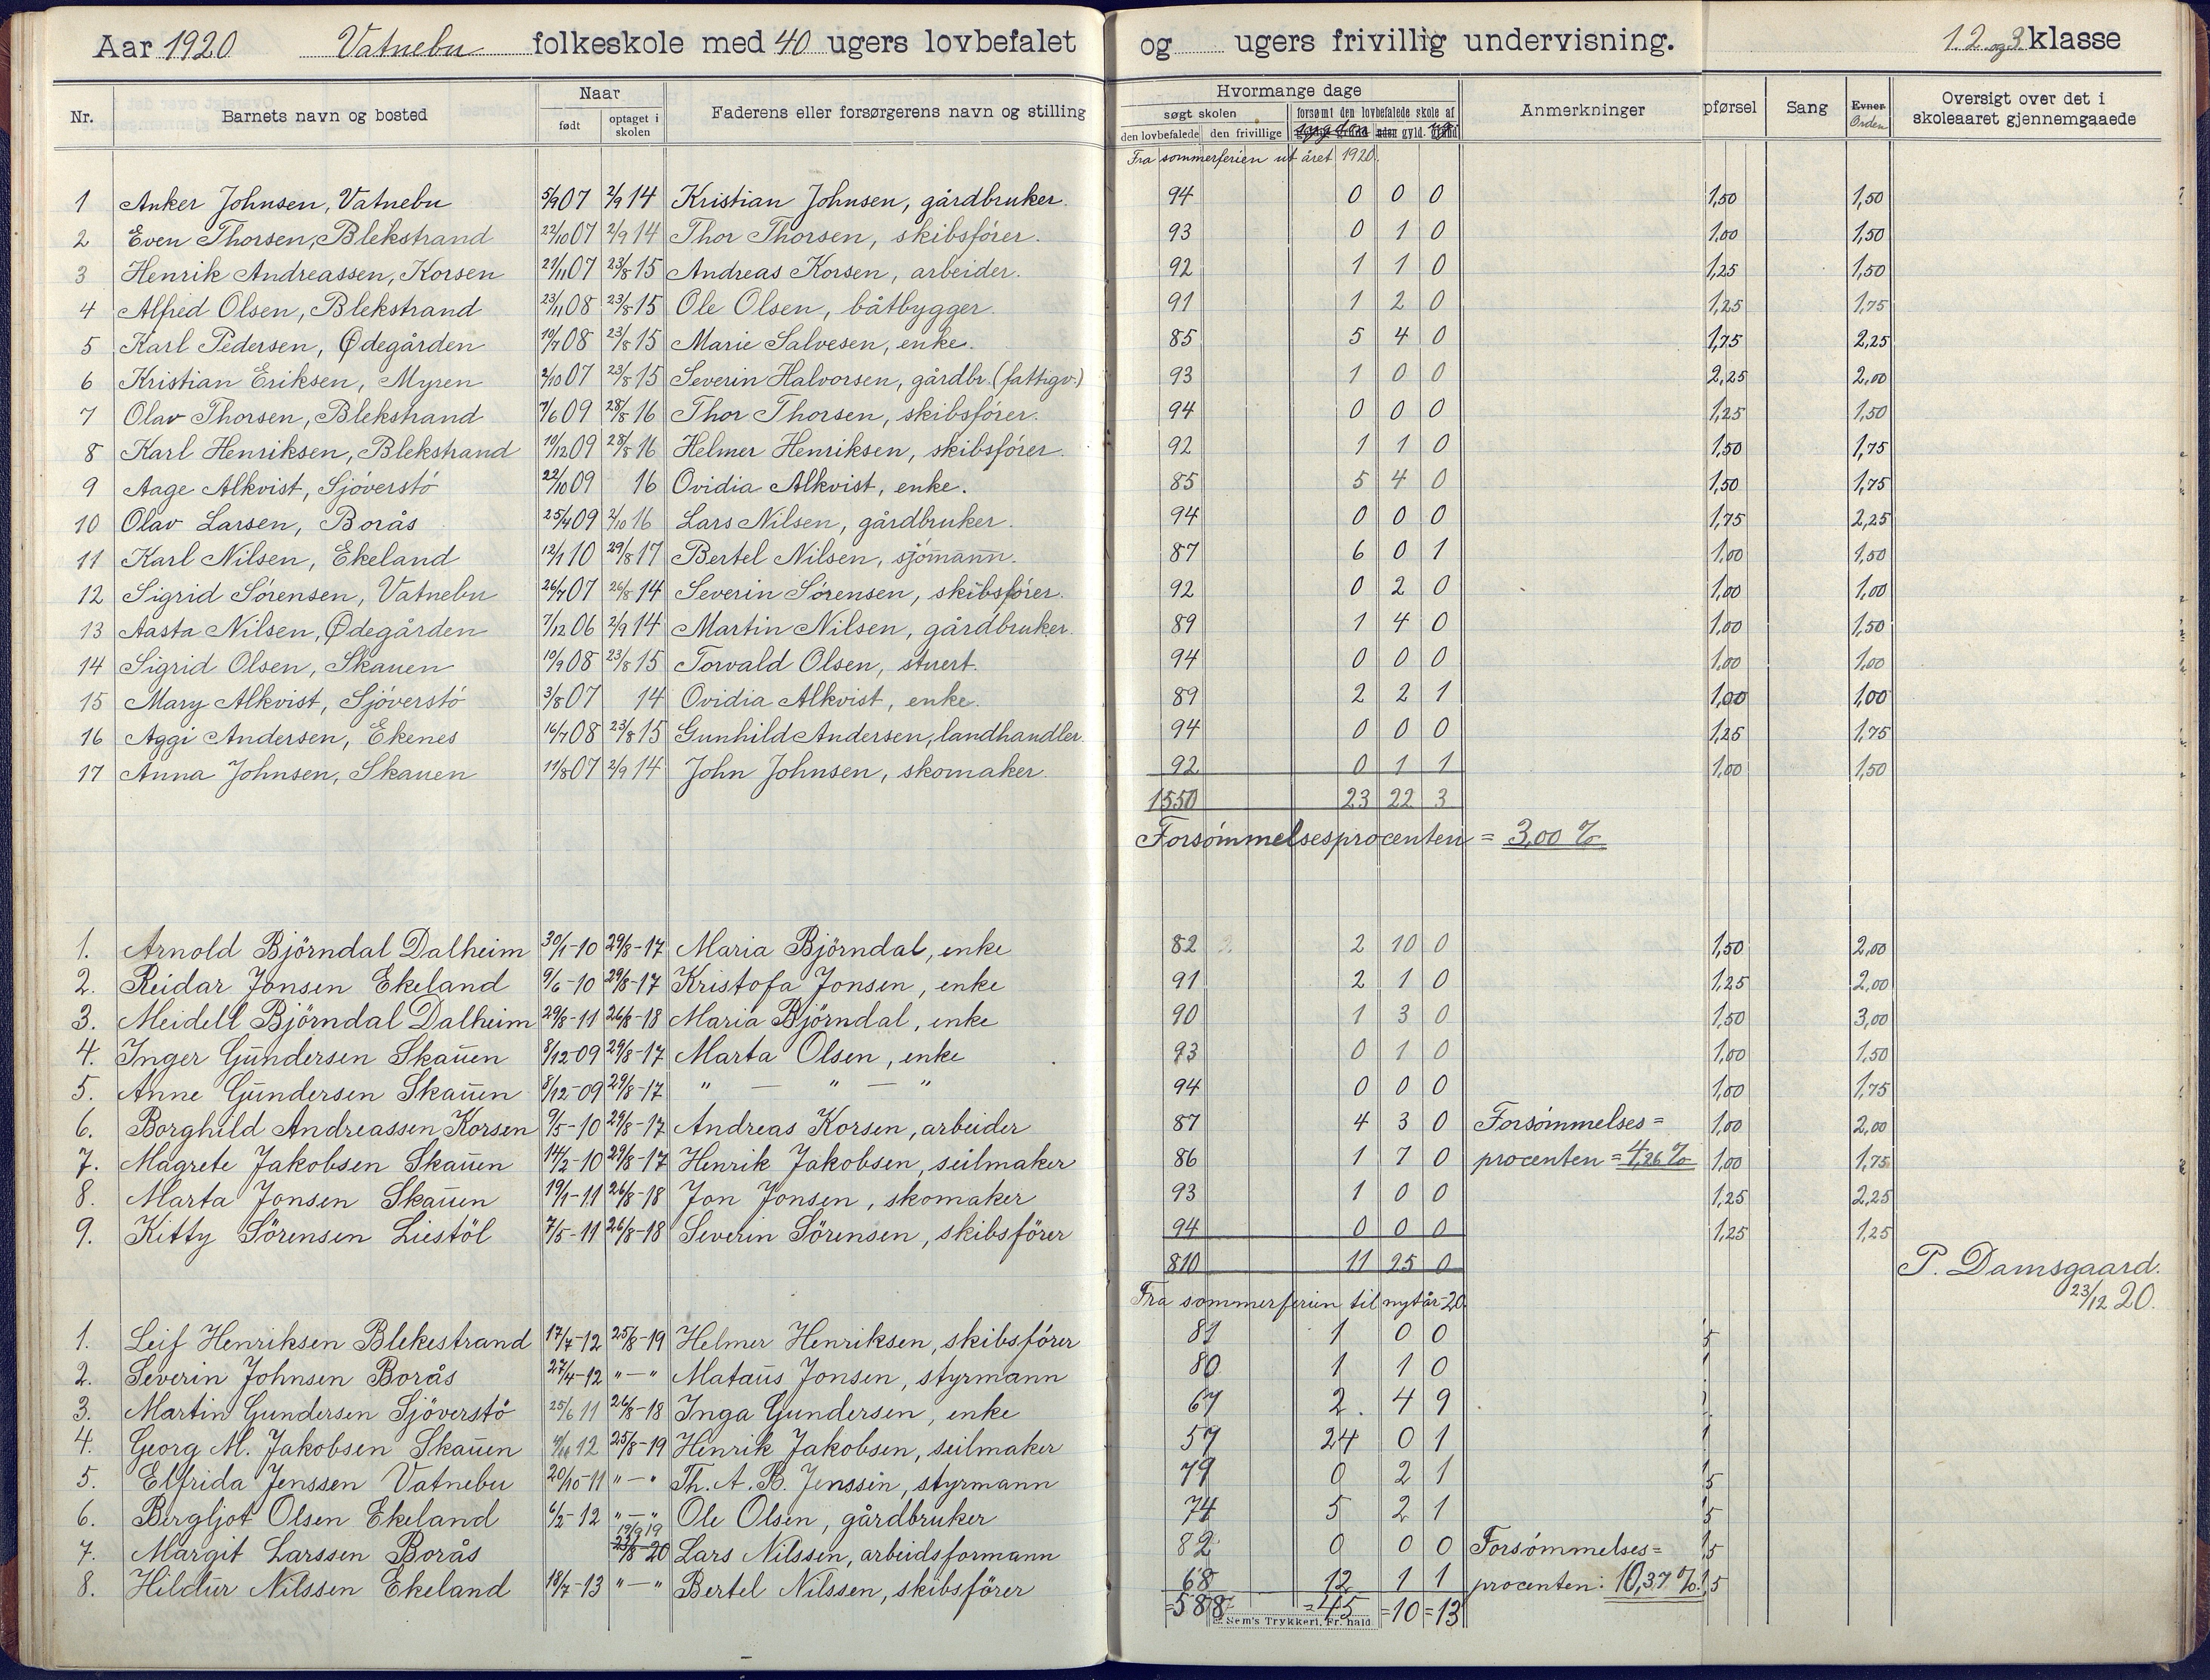 Aar 1920 Vatnebu folkeskole med 40 ugers lovbefalet og ugers frivillig undervisning. 1. 2. og 3. klasse
Nr. Barnets navn og bosted Naar født optaget i skolen Faderens eller forsørgerens navn og stilling Hvormange dage søgt skolen den lovbefalede den frivillige forsømt den lovbefalede skole af Anmerkninger pførsel Sang Evner Orden Oversigt over det i skoleaaret gjennemgaaede
Fra sommerferien ut året 1920.
1 Anker Johnsen, Vatnebu 5/9 07 2/9 14 Kristian Johnsen, gårdbruker. 94 0 0 0 1,50 1,50
2 Even Thorsen, Blekstrand 22/10 07 2/9 14 Thor Thorsen, skibsfórer. 93 0 1 0 1,00 1,50
3 Henrik Andreassen, Korsen 21/11 07 23/8 15 Andreas Korsen, arbeider. 92 1 1 0 1,25 1,50
4 Alfred Olsen, Blekstrand 23/11 08 23/8 15 Ole Olsen, båtbygger. 91 1 2 0 1,25 1,75
5 Karl Pedersen, Ødegården 10/7 08 23/8 15 Marie Salvesen, enke. 85 5 4 0 1,75 2,25
6 Kristian Eriksen, Myren 2/10 07 23/8 15 Severin Halvorsen, gårdbr. (fattigv.) 93 1 0 0 2,25 2,00
7 Olav Thorsen, Blekstrand 7/6 09 28/8 16 Thor Thorsen, skibsfórer. 94 0 0 0 1,25 1,50
8 Karl Henriksen, Blekstrand 10/12 09 28/8 16 Helmer Henriksen, skibsfórer. 92 1 1 0 1,50 1,75
9 Aage Alkvist, Sjóverstó 22/10 09 16 Ovidia Alkvist, enke. 85 5 4 0 1,50 1,75
10 Olav Larsen, Borås 25/4 09 2/10 16 Lars Nilsen, gårdbruker. 94 0 0 0 1,75 2,25
11 Karl Nilsen, Ekeland 12/1 10 29/8 17 Bertel Nilsen, sjómann. 87 6 0 1 1,00 1,50
12 Sigrid Sórensen, Vatnebu 26/7 07 26/8 14 Severin Sórensen, skibsfórer. 92 0 2 0 1,00 1,00
13 Aasta Nilsen, Ødegården 7/12 06 2/9 14 Martin Nilsen, gårdbruker. 89 1 4 0 1,00 1,50
14 Sigrid Olsen, Skauen 10/9 08 23/8 15 Torvald Olsen, stuert. 94 0 0 0 1,00 1,00
15 Mary Alkvist, Sjóverstó 3/8 07 14 Ovidia Alkvist, enke. 89 2 2 1 1,00 1,00
16 Aggi Andersen, Ekenes 16/7 08 23/8 15 Gunhild Andersen, landhandler. 94 0 0 0 1,25 1,75
17 Anna Johnsen, Skauen 11/8 07 2/9 14 John Johnsen, skomaker. 92 0 1 1 1,00 1,50
1550 23 22 3
Forsómmelsesprocenten = 3,00 %
1. Arnold Björndal Dalheim 30/1-10 29/8-17 Maria Björndal, enke 82 2 10 0 1,50 2,00
2. Reidar Jonsen Ekeland 9/6-10 29/8-17 Kristofa Jonsen, enke 91 2 1 0 1,25 2,00
3. Meidell Björndal Dalheim 29/8-11 26/8-18 Maria Björndal, enke 90 1 3 0 1,50 3,00
4. Inger Gundersen Skauen 8/12-09 29/8-17 Marta Olsen, enke 93 0 1 0 1,00 1,50
5. Anne Gundersen Skauen 8/12-09 29/8-17 " — " — " 94 0 0 0 1,00 1,75
6. Borghild Andreassen Korsen 9/5-10 29/8-17 Andreas Korsen, arbeider 87 4 3 0 Forsómmelses= 1,00 2,00
7. Magrete Jakobsen Skauen 14/2-10 29/8-17 Henrik Jakobsen, seilmaker 86 1 7 0 procenten = 4,26 % 1,00 1,75
8. Marta Jonsen Skauen 19/1-11 26/8-18 Jon Jonsen, skomaker 93 1 0 0 1,25 2,25
9. Kitty Sörensen Liestöl 7/5-11 26/8-18 Severin Sörensen, skibsförer 94 0 0 0 1,25 1,25
810 11 25 0
P. Damsgaard.
23/12 20.
Fra sommerferien til nytår-20
1. Leif Henriksen Blekestrand 17/7-12 25/8-19 Helmer Henriksen, skibsfórer 81 1 0 0 5
2. Severin Johnsen Borås 27/4-12 "—" Mataus Jonsen, styrmann 80 1 1 0
3. Martin Gundersen Sjöverstö 25/6 11 26/8-18 Inga Gundersen, enke 67 2 4 9
4. Georg M. Jakobsen Skauen 12 25/8-19 Henrik Jakobsen, seilmaker 57 24 0 1
5. Elfrida Jenssen Vatnebu 20/10-11 "—" Th. A. B. Jenssen, styrmann 79 0 2 1 5
6. Bergljot Olsen Ekeland 6/2-12 "—" Ole Olsen, gårdbruker 74 5 2 1 5
7. Margit Larssen Borås 19/9 19 23/8-20 Lars Nilssen, arbeidsformann 82 0 0 0 Forsómmelses= 5
8. Hildur Nilssen Ekeland 18/7-13 "—" Bertel Nilssen, skibsförer 68 12 1 1 procenten: 10,37 %. 5
=588 =45 =10 =13
Sem's Trykkeri, Fr.hald